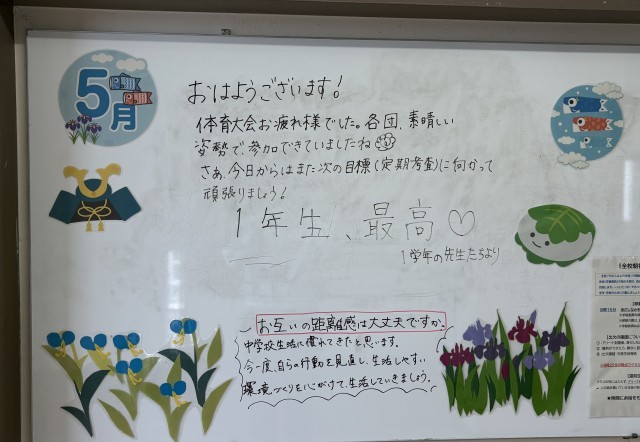 5月
おはようございます!
体育大会お疲れ様でした。各団、素晴しい
姿勢で参加できていましたね
さぁ、今日からはまた次の目標(定期考査)に向かって
頑張りましょう!
1年生、最高♡
1学年の先生たちより
お互いの距離感は大丈夫ですか。
中学校生活に慣れてきたと思います。
今一度、自らの行動を見直し、生活しやすい
環境づくりを心がけて、生活していきましょう。